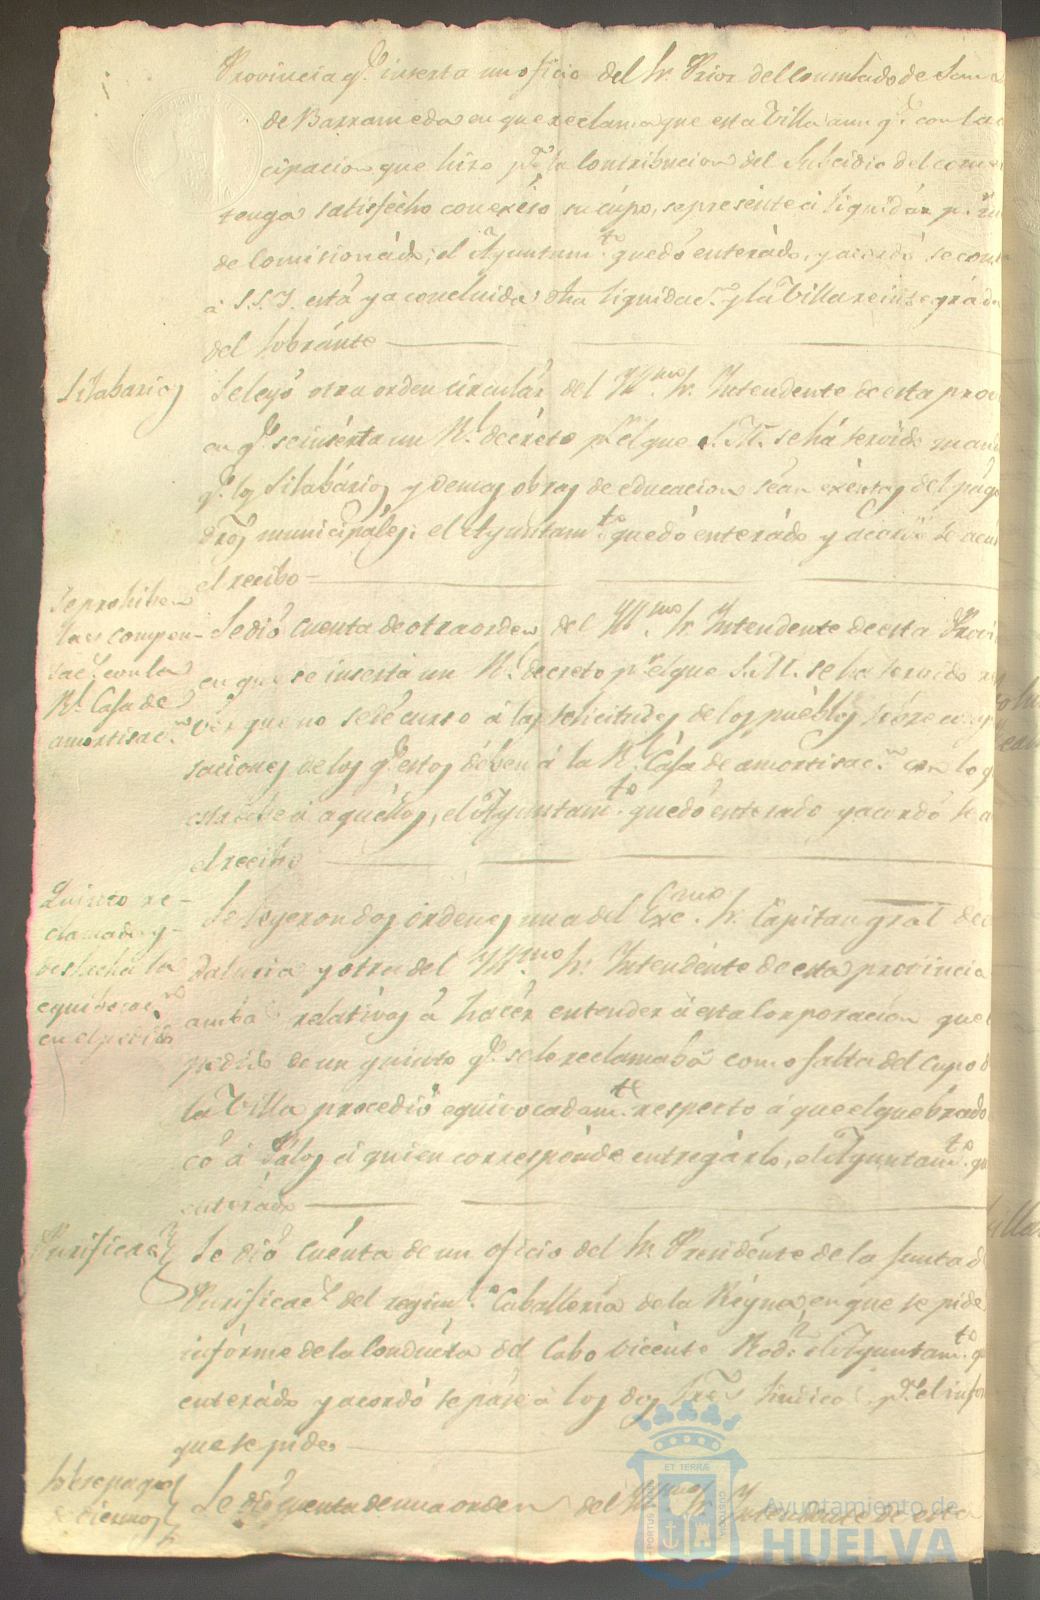 Provincia q.e inserta un oficio del Sr. Prior del Consulado de San
de Barrameda en que reclama que esta Villa aun q.e con la
cipacion que hizo p.r la Contribucion del Subcidio del comer
tenga satisfecho con exéso su cúpo, se presente á liquidár p.r
de Comisionádo; el Ayuntam.to quedó enterádo, y acordó se cont
á S.S.Y. está ya concluida dha liquidac.n y la Villa reintegráda
del sobránte
Silabarios
Se leyó otra orden circulár del Yll.mo Sr. Yntendente de esta prov
en q.e se insérta un R.l decréto p.r el que S.M. se há servido man
q.e los Silabários y demas obras de educacion séan exéntas del págo
dros municipáles; el Ayuntam.to quedó enterádo y acordó se acus
el recibo
Se prohiben
las compen-
sac.s con la
R.l Casa de
amortisac.n
Se dió cuenta de otra orden del Yll.mo Sr. Yntendente de esta Provi
en que se inserta un R.l decreto p.r el que S.M. se ha servido
vér que no se dé curso á las solicitudes de los puéblos sóbre
saciones de los q.e estos dében á la R.l Cása de amortisac.n con lo q
á aquéllos, el Ayuntam.to quedó enterado y acordó se a
el recibo
Quinto re-
clamado y
deshecha la
equibocac.n
en el pedido
Se leyeron dos órdenes una del Exc.mo Sr. Capitan gral de
dalucia y otra del Yll.mo Sr. Yntendénte de esta provincia
ambas relatívas á hacér entender á esta Corporación que
pedido de un quinto q.e se le reclamaba como falta del cupo d
la Villa procedió equivocadam.te respecto á que el quebrado
có á Palos á quien correspónde entregárlo, el Ayuntam.to qu
enterádo
Purificac.n
Se dió cuénta de un oficio del Sr. Presidénte de la Junta d
Purificac.n del regim.to Caballería de la Réyna, en que se pide
infórme de la Condúcta del Cabo Vicénte Rod.z el Ayuntam.to q
enterádo y acordó se páse á los dos Sres Sindicos p.a el infor
que se pide
Sobre pagos
de diezmos
Se dió cuenta de una orden del Yll.mo Sr. Yntendente de esta
ET TERRÆ
PORTUS MARIS
CUSTODIA
Ayuntamiento de
HUELVA